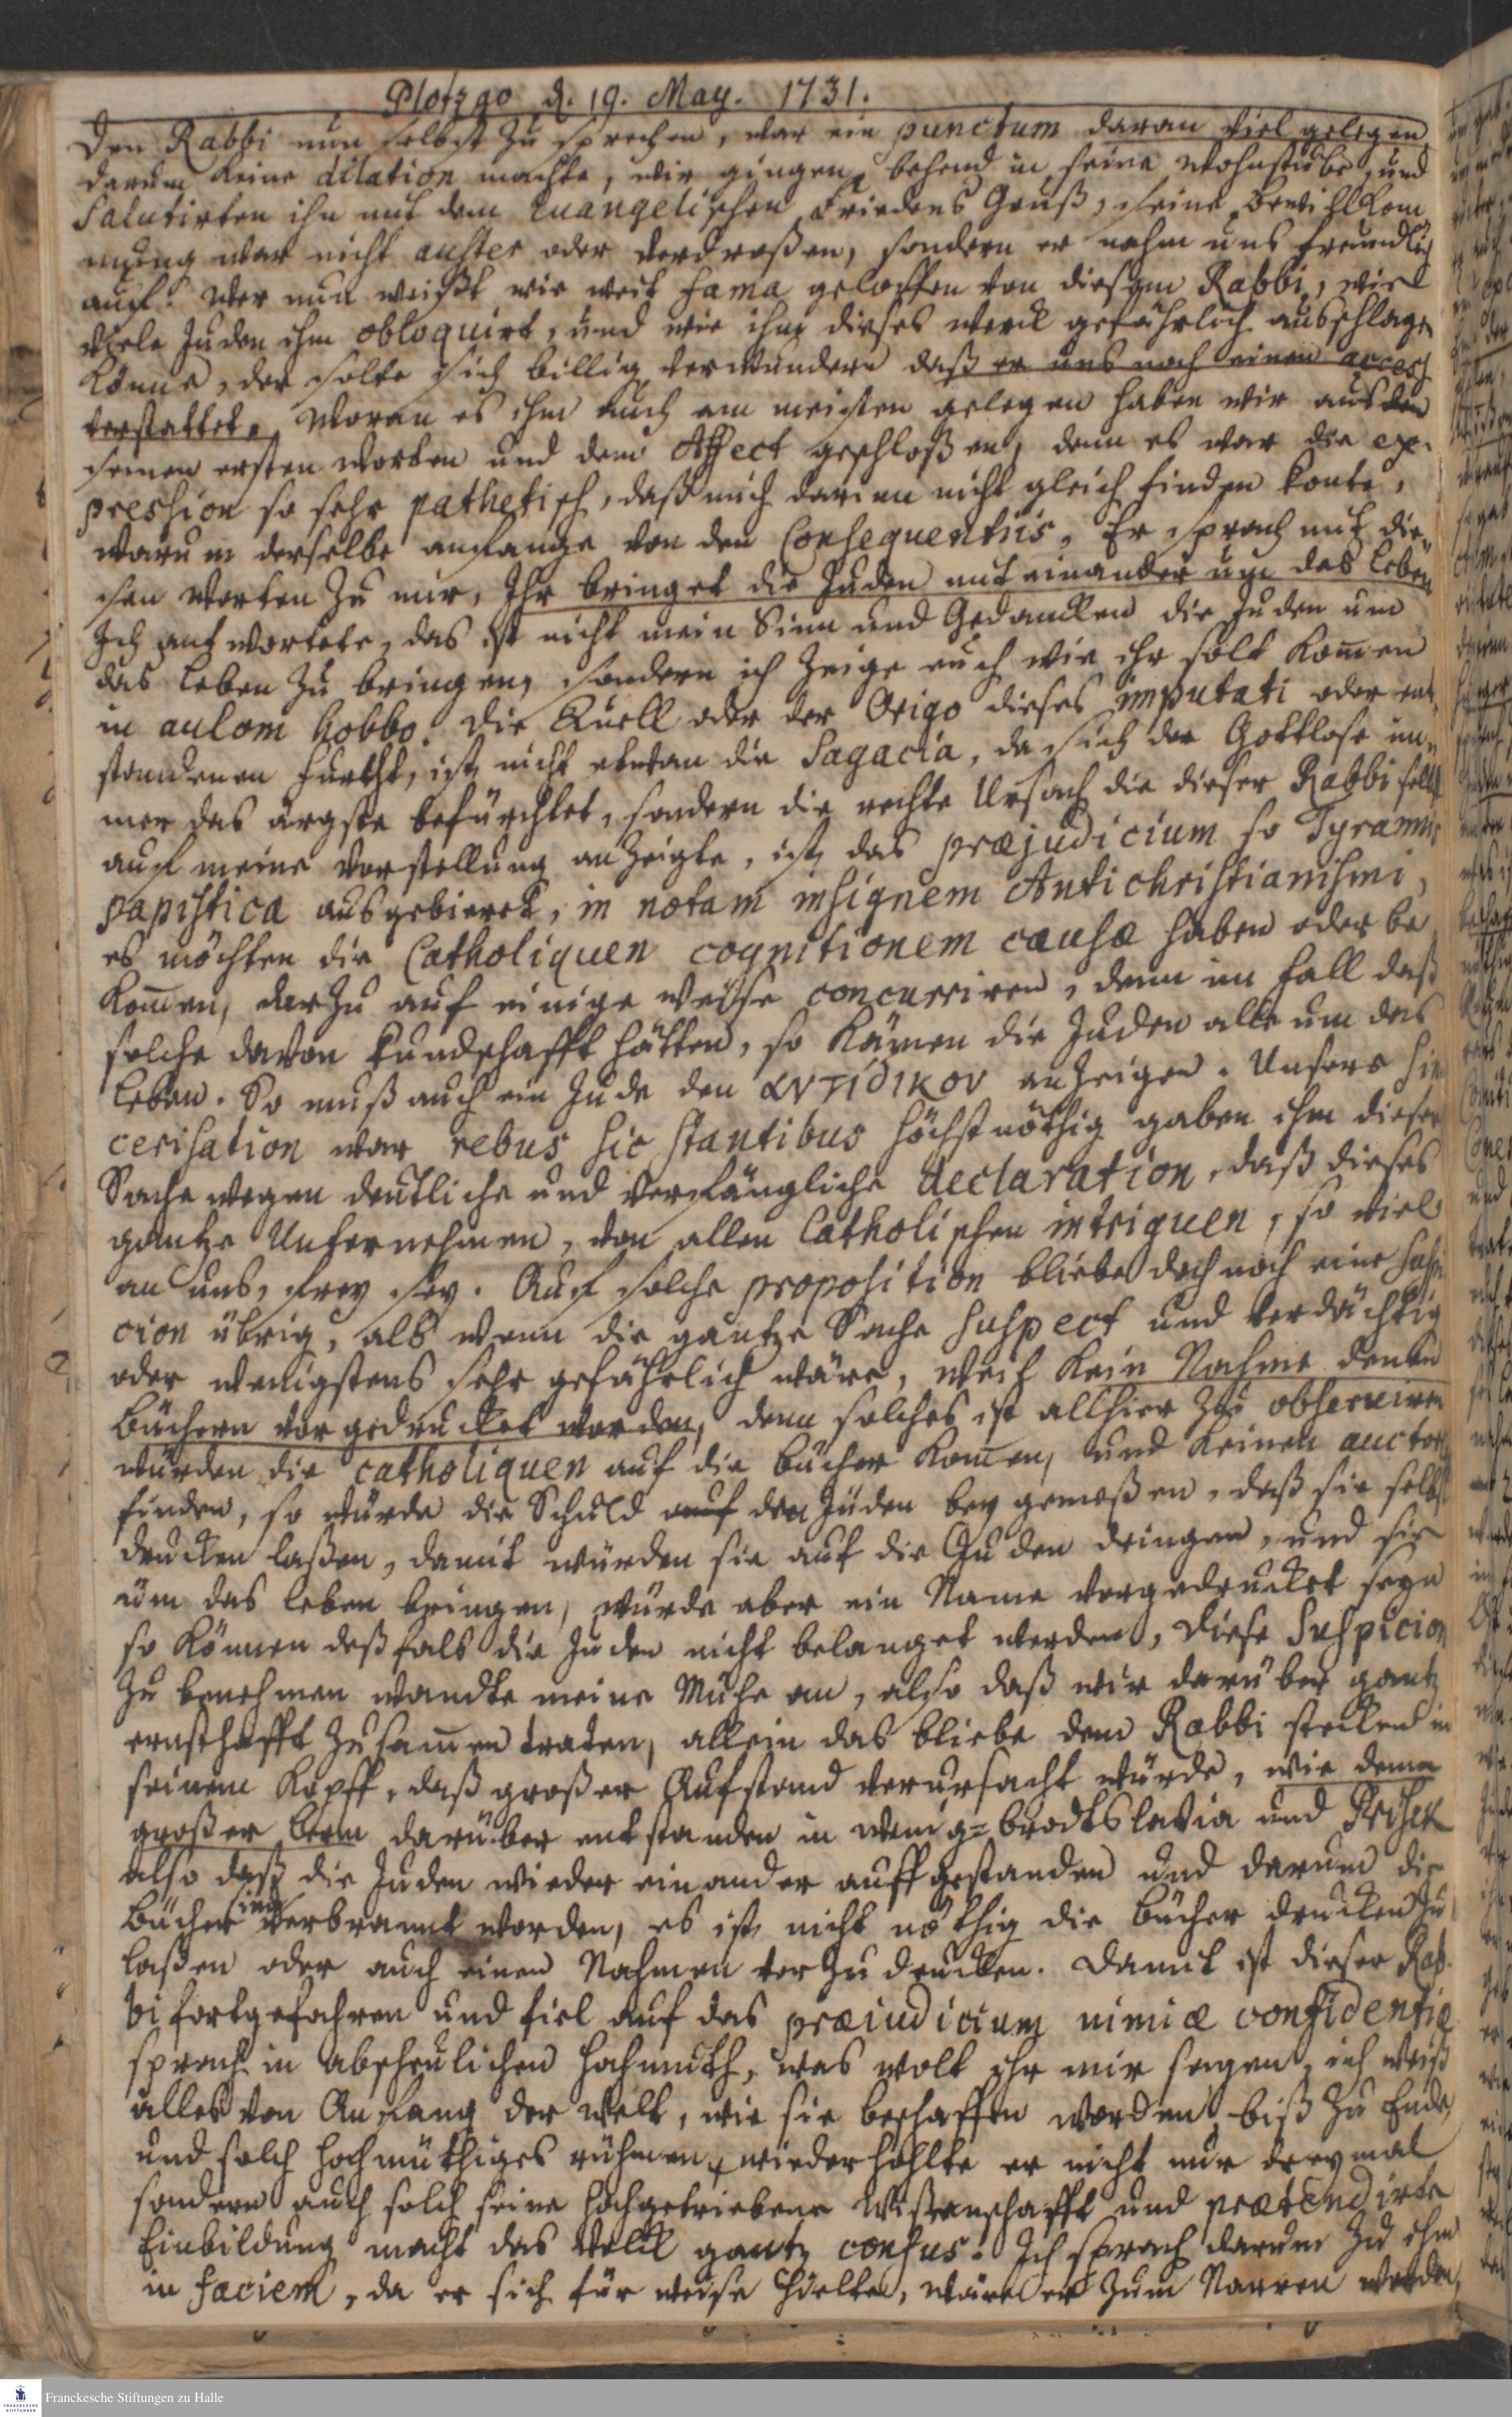 Plotzgo d. 19. May. 1731.
Den Rabbi nun selbst zu sprechen, war ein punctum daran viel gelegen
darum keine dilation machte, wir gingen behend in seine Wohnstube, und
salutirten ihn mit dem Euangelischen Friedens Gruß, seine Bewillkom
mung war nicht auster oder verdroßen, sondern er nahm uns freundlich
auf. Wer nun weißt wie weit fama geloffen von diesem Rabbi, wie
viele Juden ihm obloquirt, und wie ihm dieses werck gefährlich ausschlagen
könne, der solte sich billig verwundern daß er uns noch einen access
verstattet. Woran es ihm auch am meisten gelegen haben wir aus
seinen ersten Worten und dem Affect geschloßen, denn es war die ex-
pression so sehr pathetisch, daß mich darinn nicht gleich finden konte,
warum derselbe anfange von den Consequentiis. Er sprach mit die-
sen Worten zu mir, Ihr bringet die Juden mit einander um das Leben
Ich antwortete, das ist nicht mein Sinn und Gedancken die Juden um
das Leben zu bringen, sondern ich zeige euch wie ihr solt kommen
in aulom habbo. Die Quell oder der Origo dieses imputati oder ent-
standenen Furcht, ist nicht etwan die Sagacia, da sich der Gottlose im-
mer das ärgste befürchtet, sondern die rechte Ursach die dieser Rabbi selbst
auf meine Vorstellung anzeigte, ist das præjudicium so Tyrannis
papistica ausgebieret, in notam insignem Antichristianismi,
es möchten die Catholiquen cognitionem causæ haben oder be
kommen, darzu auf einige weise concurriren, denn im Fall daß
solche davon kundschafft hätten, so kämen die Juden alle um das
Leben. So muß auch ein Jude den αντίδικον anzeigen. Unsere sin
cerisation war rebus sic stantibus höchstnöthig gaben ihm dieser
Sache wegen deutliche und verfängliche declaration, daß dieses
gantze Unternehmen, von allen Catholischen intriquen, so viel
an uns, frey sey. Auf solche proposition bliebe doch noch eine suspi
cion übrig, als wenn die gantze Sache suspect und verdächtig
oder wenigstens sehr gefährlich wäre, weil kein Nahme denen
Büchern vorgedrucket worden, denn solches ist allhier zu observiren
würden die catholiquen auf die Bücher kommen, und keinen auctor
finden, so würde die Schuld den Jüden bey gemeßen, daß sie selbst
drucken laßen, damit würden sie auf die Juden dringen, und sie
um das Leben bringen, würde aber ein Name vorgedruckt seyn
so können deßfals die Juden nicht belanget werden, diese Suspicion
zu benehmen wandte meine Mühe an, also daß wir darüber gantz
ernsthafft zusammen traten, allein das bliebe dem Rabbi stecken in
seinem Kopff, daß großer Aufstand verursacht würde, wie denn
großer Lerm darüber entstanden in wenig= brodtslavia und
also daß die Juden wieder einander auffgestanden und darum die
Bücher sind verbrannt worden, es ist nicht nöthig die Bücher drucken zu
laßen oder auch einen Nahmen vor zu drucken. Damit ist dieser Rab-
bi fortgefahren und fiel auf das præiudicium nimiæ confidentiæ
sprach in abscheulichen Hochmuth, was wolt ihr mir sagen, ich weiß
alles von Anfang der Welt, wie sie beschaffen worden, biß zu Ende
und solch hochmüthiges rühmen, wiederhohlte er nicht nur dreymal
sondern auch solch seine hochgetriebene Wißenschafft und prætendirte
Einbildung macht das Volck gantz confus. Ich sprach darum zu ihm
in faciem, da er sich für weise hielte, wäre er zum Narren worden,
Franckesche Stiftungen zu Halle